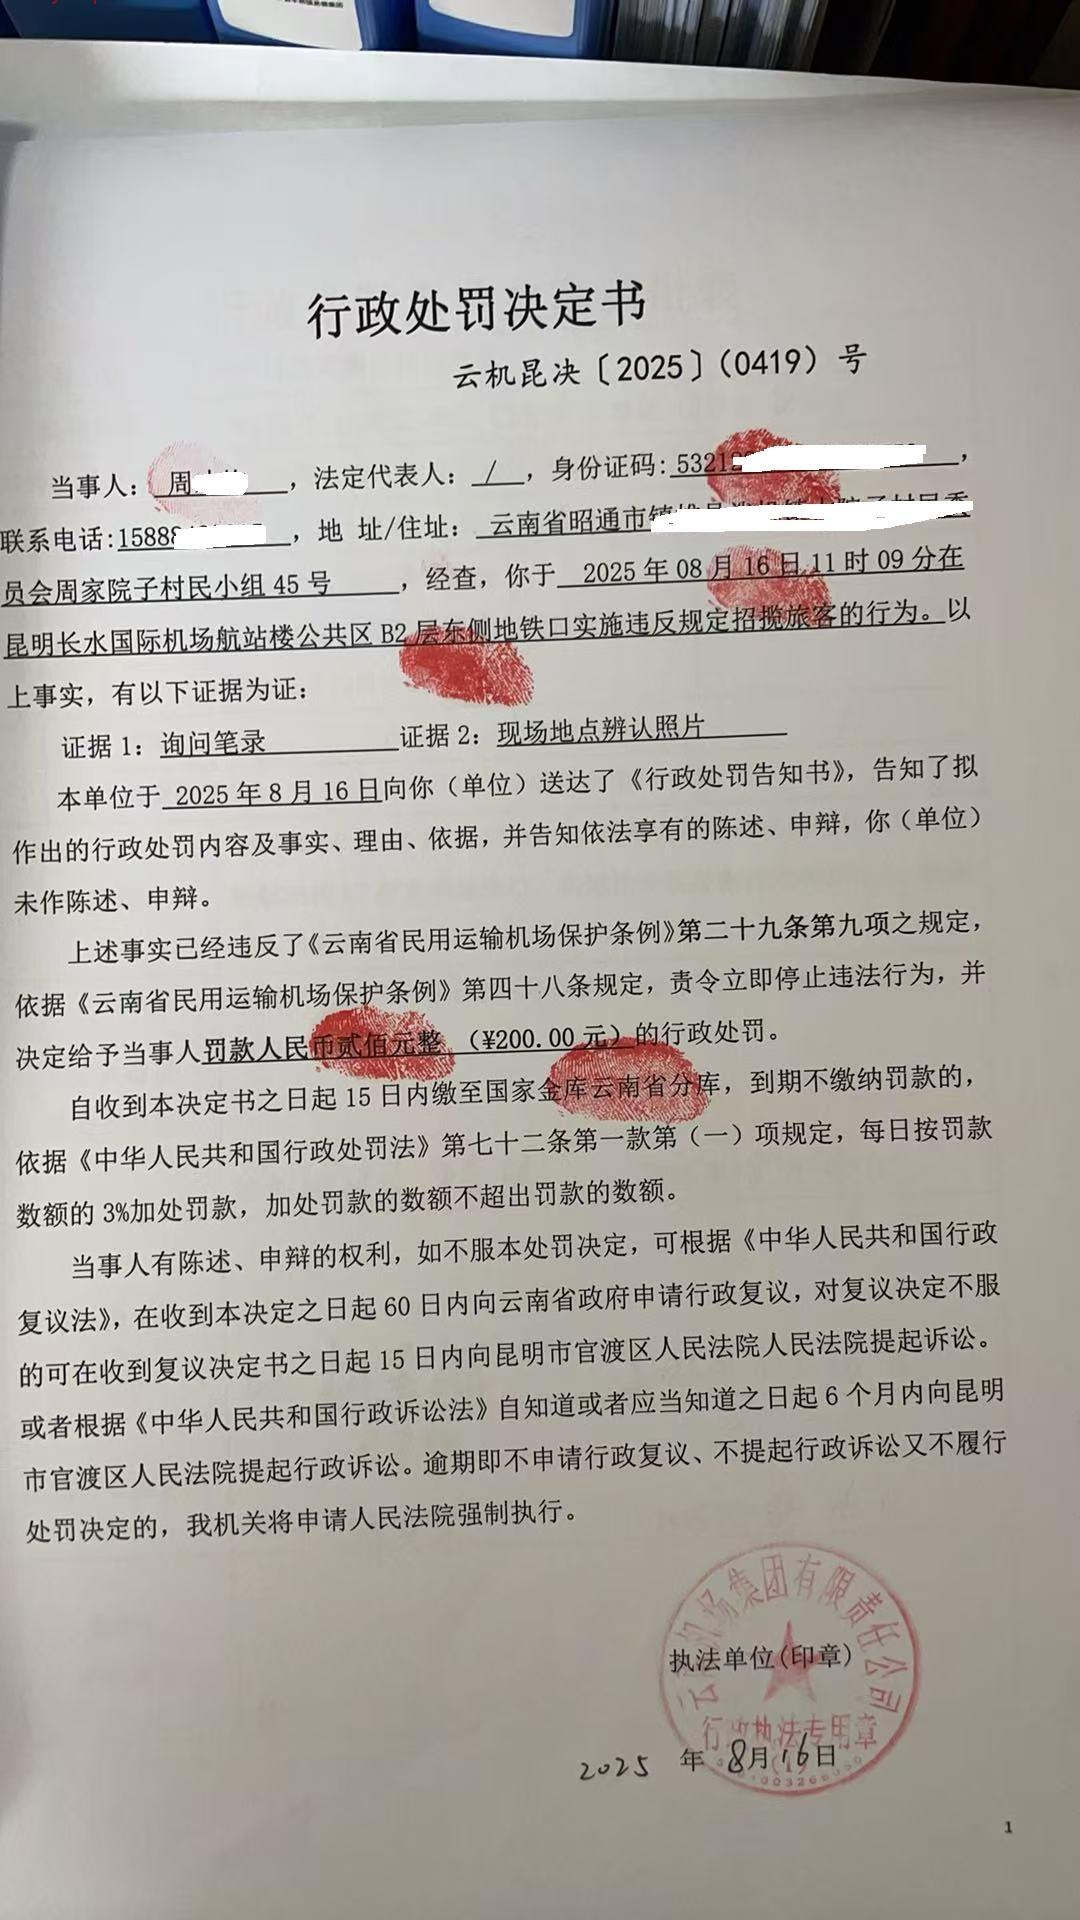 行政处罚决定书
云机昆决〔2025〕(0419)号
当事人：周，法定代表人：/，身份证码：5321，
联系电话:15888，地 址/住址：云南省昭通市镇
员会周家院子村民小组 45 号，经查，你于 2025 年 08 月 16 日 11 时 09 分在
昆明长水国际机场航站楼公共区 B2 层东侧地铁口实施违反规定招揽旅客的行为。以
上事实，有以下证据为证：
证据 1：询问笔录 证据 2：现场地点辨认照片
本单位于 2025 年 8 月 16 日向你（单位）送达了《行政处罚告知书》，告知了拟
作出的行政处罚内容及事实、理由、依据，并告知依法享有的陈述、申辩，你（单位）
未作陈述、申辩。
上述事实已经违反了《云南省民用运输机场保护条例》第二十九条第九项之规定，
依据《云南省民用运输机场保护条例》第四十八条规定，责令立即停止违法行为，并
决定给予当事人罚款人民币贰佰元整（¥200.00 元）的行政处罚。
自收到本决定书之日起 15 日内缴至国家金库云南省分库，到期不缴纳罚款的，
依据《中华人民共和国行政处罚法》第七十二条第一款第（一）项规定，每日按罚款
数额的 3%加处罚款，加处罚款的数额不超出罚款的数额。
当事人有陈述、申辩的权利，如不服本处罚决定，可根据《中华人民共和国行政
复议法》，在收到本决定之日起 60 日内向云南省政府申请行政复议，对复议决定不服
的可在收到复议决定书之日起 15 日内向昆明市官渡区人民法院人民法院提起诉讼。
或者根据《中华人民共和国行政诉讼法》自知道或者应当知道之日起 6 个月内向昆明
市官渡区人民法院提起行政诉讼。逾期即不申请行政复议、不提起行政诉讼又不履行
处罚决定的，我机关将申请人民法院强制执行。
云 机场集团有限责任公司
执法单位(印章)
行政执法专用章
2025 年 8月 16日
1